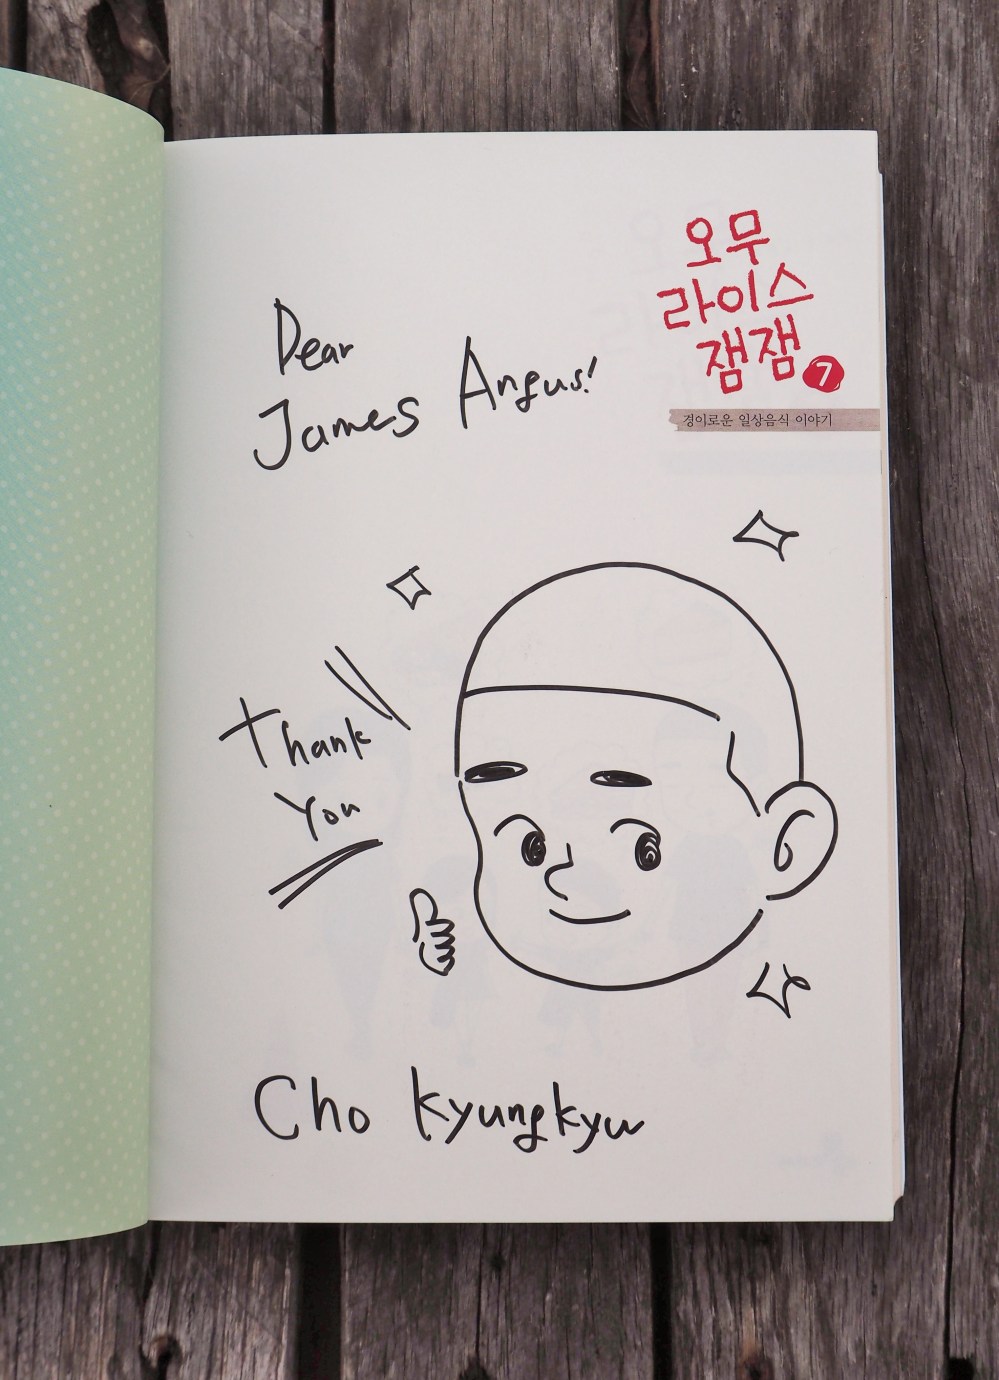 오무
라이스
잼잼
7
경이로운 일상음식 이야기
Dear
James Angus!
Thank
You
Cho Kyungkyu